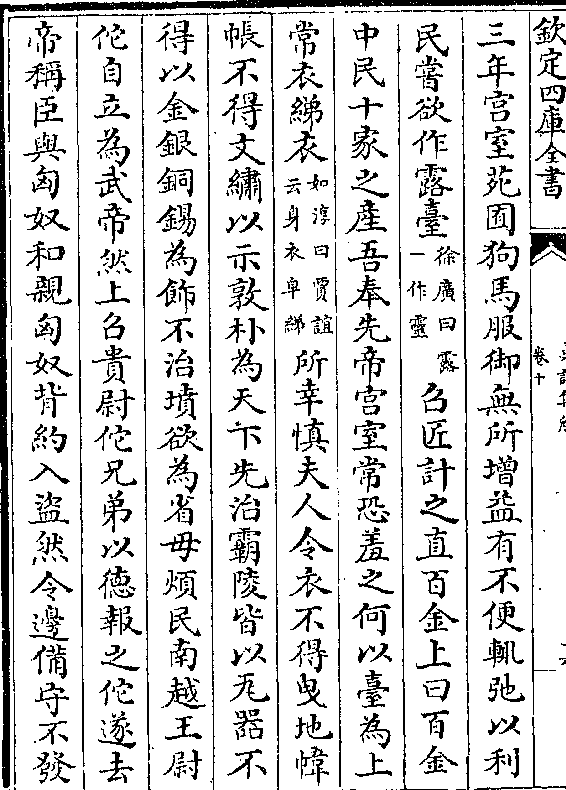 欽定四庫全書
卷十
三年宫室苑囿狗馬服御無所増益有不便輒弛以利
民嘗欲作露臺徐廣曰露一作靈召匠計之直百金上曰百金
中民十家之産吾奉先帝宫室常恐羞之何以臺為上
常衣綈衣如淳曰賈誼云身衣皁綈所幸慎夫人令衣不得曳地幃
帳不得文繡以示敦朴為天下先治霸陵皆以瓦器不
得以金銀銅錫為飾不治墳欲為省毋煩民南越王尉
佗自立為武帝然上召貴尉佗兄弟以德報之佗遂去
帝稱臣與匈奴和親匈奴背約入盗然令邊備守不發